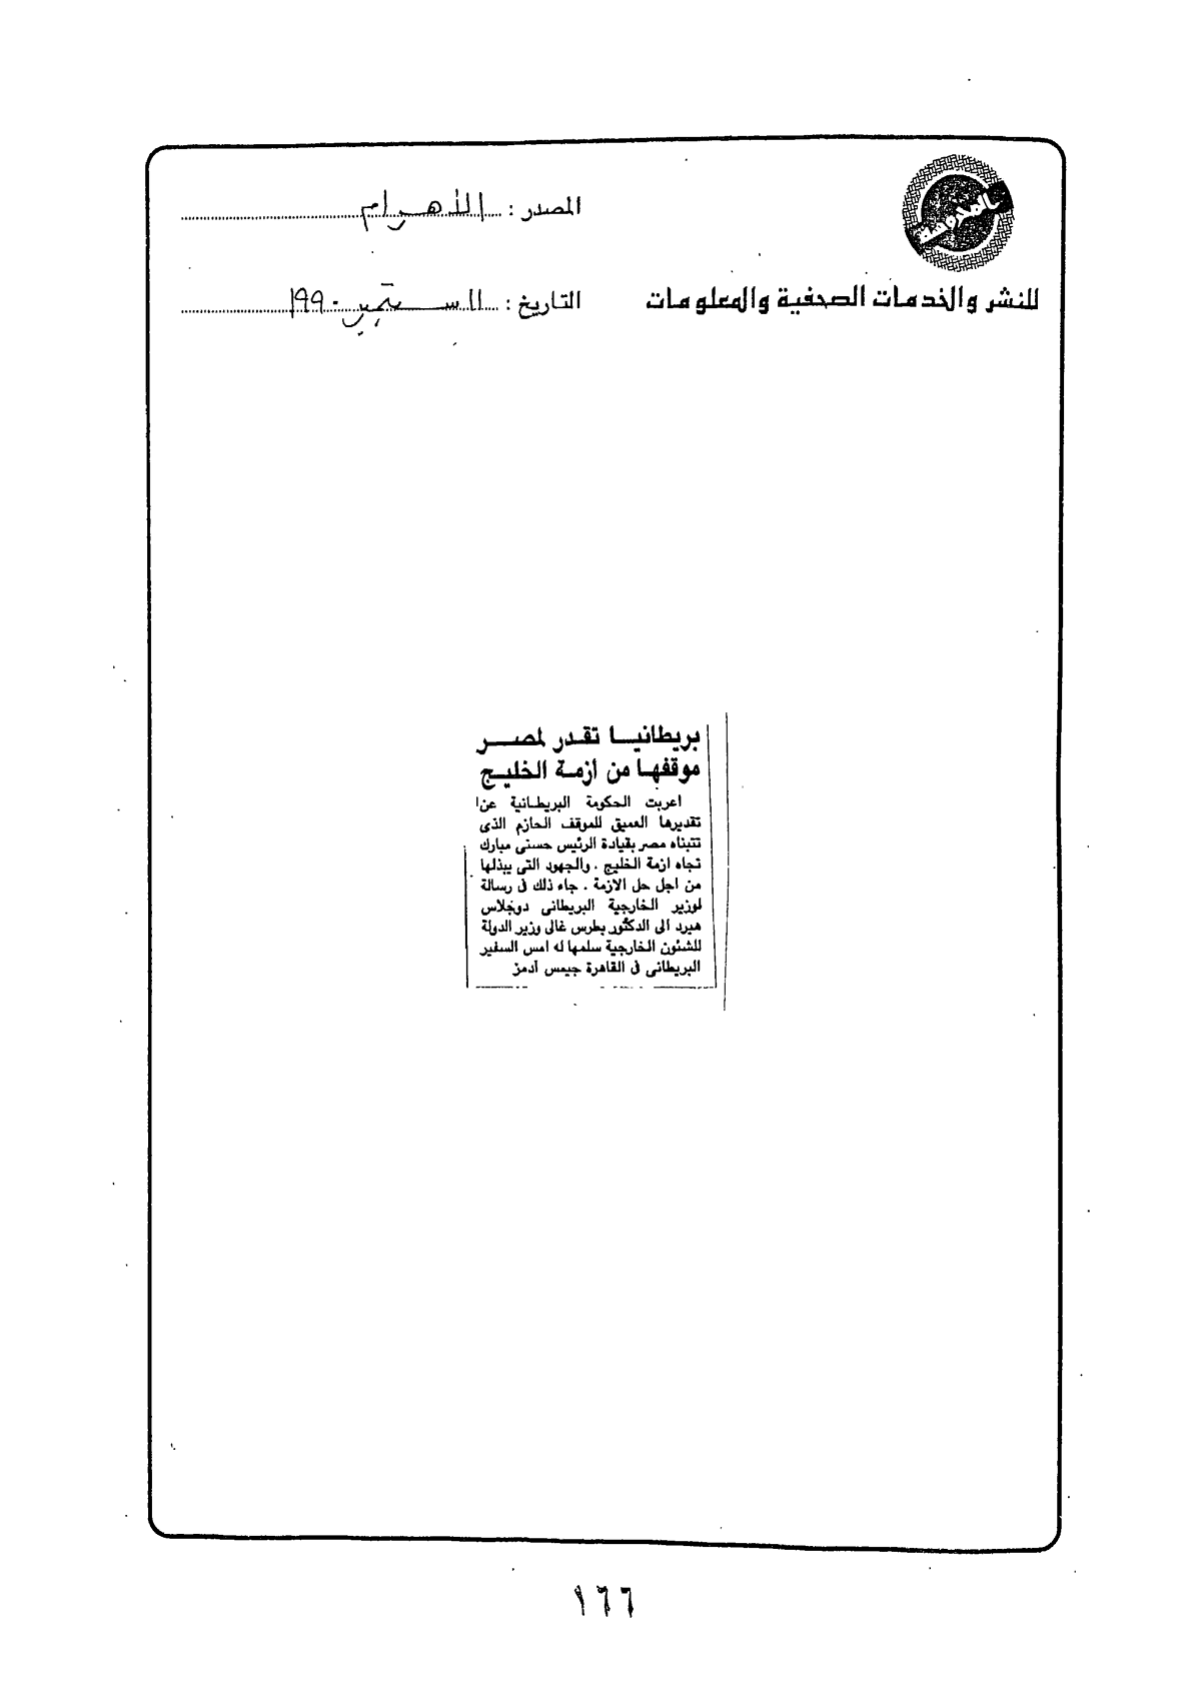 المصدر : الأهرام
التاريخ : ١١ سبتمبر ١٩٩٠
للنشر والخدمات الصحفية والمعلومات
بريطانيا تقدر لمصر
موقفها من أزمة الخليج
اعربت الحكومة البريطانية عن
تقديرها العميق للموقف الحازم الذى
تتبناه مصر بقيادة الرئيس حسنى مبارك
تجاه ازمة الخليج . والجهود التى يبذلها
من اجل حل الازمة . جاء ذلك فى رسالة
لوزير الخارجية البريطانى دوجلاس
هيرد الى الدكتور بطرس غالى وزير الدولة
للشئون الخارجية سلمها له امس السفير
البريطانى فى القاهرة جيمس آدمز
١٦٦